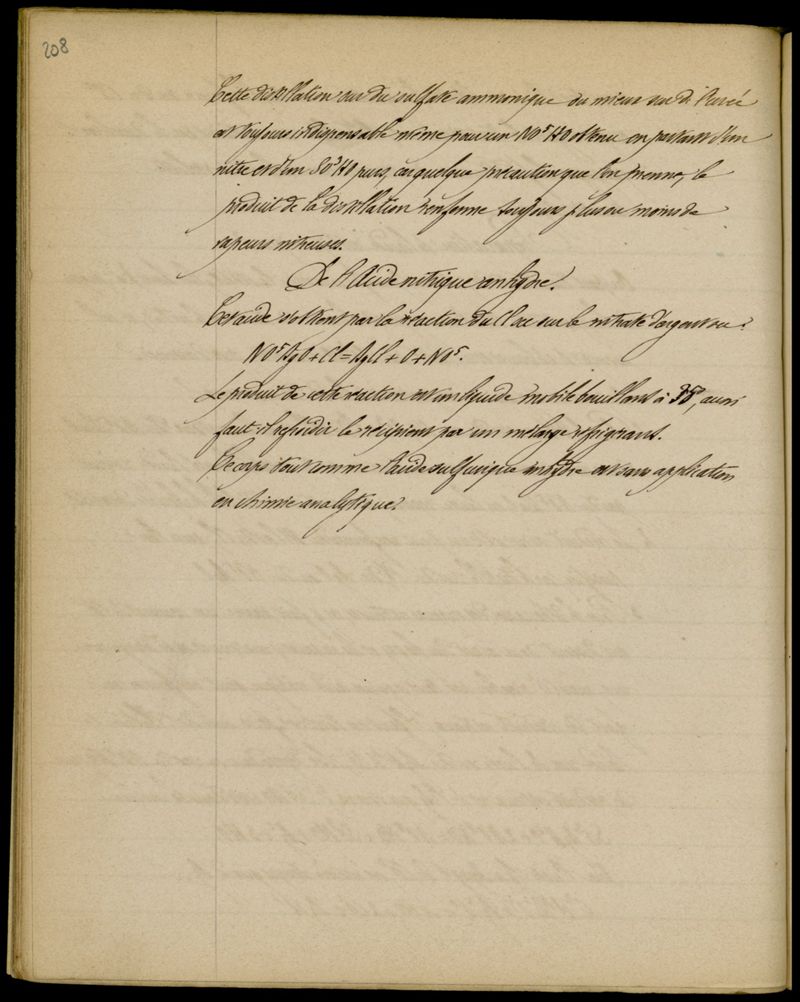 208
Cette distillation sur du sulfate ammonique ou mieux sur d. l'urée
est toujours indispensable même pour un NO⁵HO obtenu en partant d'un
nitre et d'un SO³HO purs, car quelque précaution que l'on prenne, le
produit de la distillation renferme toujours plus ou moins de
vapeurs nitreuses.
De l'Acide nitrique anhydre.
Cet acide s'obtient par la réaction du Cl sec sur le nitrate d'argent sec.
NO⁵AgO + Cl = AgCl + O + NO⁵.
Le produit de cette réaction est un liquide mobile bouillant à 35°, aussi
faut-il refroidir le récipient par un mélange réfrigérant.
Ce corps tout comme l'acide sulfurique anhydre est sans application
en chimie analytique.